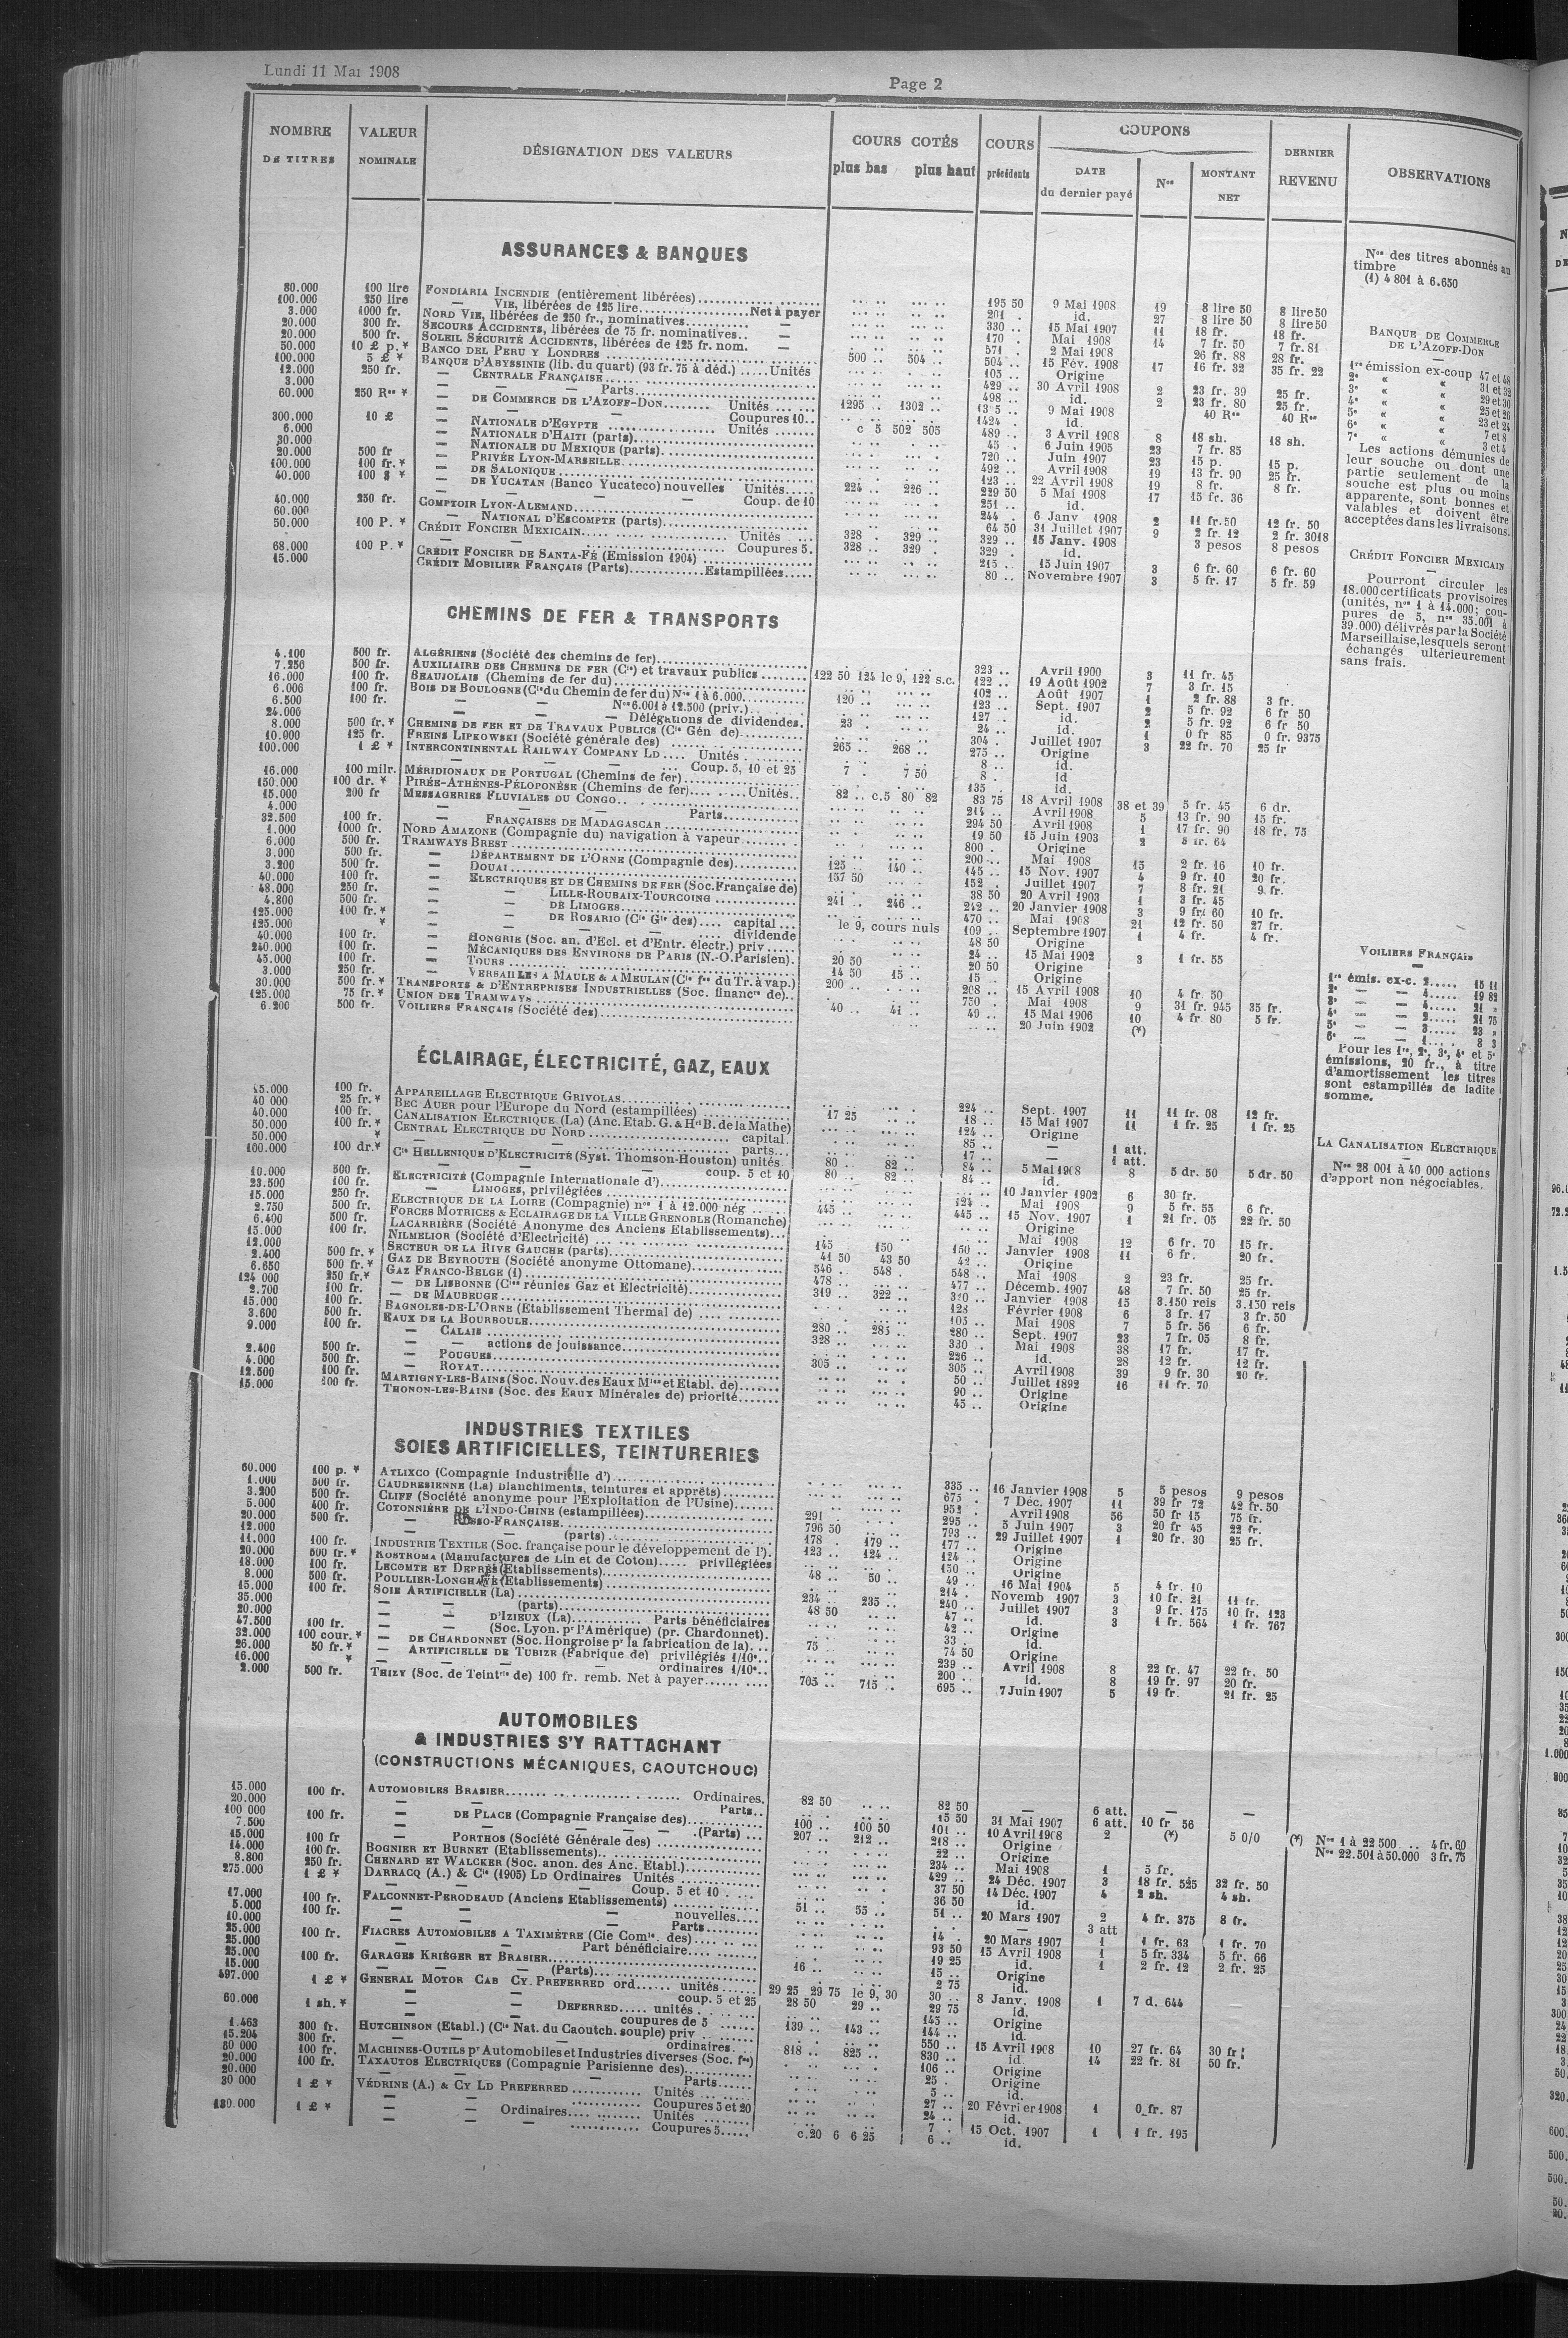 Lundi 11 Mai 1908
Page 2
NOMBRE DE TITRES
VALEUR NOMINALE
DÉSIGNATION DES VALEURS
COURS COTÉS
plus bas plus haut
COURS précédents
COUPONS
DATE du dernier payé
Nos
MONTANT NET
DERNIER REVENU
OBSERVATIONS
ASSURANCES & BANQUES
80.000 100 lire FONDIARIA INCENDIE (entièrement libérées) 195 50 9 Mai 1908 19 8 lire 50 8 lire 50
100.000 250 lire — VIE, libérées de 125 lire Net à payer 201 . id. 27 8 lire 50 8 lire 50
3.000 1000 fr. NORD VIE, libérées de 250 fr., nominatives — 330 .. 15 Mai 1907 11 18 fr. 18 fr.
20.000 300 fr. SECOURS ACCIDENTS, libérées de 75 fr. nominatives.. — 170 . Mai 1908 14 7 fr. 50 7 fr. 81
20.000 500 fr. SOLEIL SÉCURITÉ ACCIDENTS, libérées de 125 fr. nom. — 571 . 2 Mai 1908 26 fr. 88 28 fr.
50.000 10 £ p. * BANCO DEL PERU Y LONDRES 500 .. 504 .. 504 .. 15 Fév. 1908 17 16 fr. 32 35 fr. 22
100.000 5 £ * BANQUE D'ABYSSINIE (lib. du quart) (93 fr. 75 à déd.) Unités 105 .. Origine
12.000 250 fr. — CENTRALE FRANÇAISE 429 .. 30 Avril 1908 2 23 fr. 39 25 fr.
3.000 — — Parts 498 .. id. 2 23 fr. 80 25 fr.
60.000 250 Rs * — DE COMMERCE DE L'AZOFF-DON Unités 1295 .. 1302 .. 9 Mai 1908 40 Rs 40 Rs
— — Coupures 10.. 1424 . id.
300.000 10 £ — NATIONALE D'EGYPTE Unités c 5 502 505 489 .. 3 Avril 1908 8 18 sh. 18 sh.
6.000 — NATIONALE D'HAITI (parts) 45 . 6 Juin 1905 23 7 fr. 85
30.000 — NATIONALE DU MEXIQUE (parts) 720 .. Juin 1907 23 15 p. 15 p.
20.000 500 fr — PRIVÉE LYON-MARSEILLE 492 .. Avril 1908 19 13 fr. 90 25 fr.
100.000 100 fr. * — DE SALONIQUE 123 .. 22 Avril 1908 19 8 fr. 8 fr.
40.000 100 $ * — DE YUCATAN (Banco Yucateco) nouvelles Unités 224 .. 226 .. 229 50 5 Mai 1908 17 15 fr. 36
— — — Coup. de 10 251 .. id.
40.000 250 fr. COMPTOIR LYON-ALEMAND 244 . 6 Janv 1908 2 11 fr. 50 12 fr. 50
60.000 — NATIONAL D'ESCOMPTE (parts) 64 50 31 Juillet 1907 9 2 fr. 12 2 fr. 3018
50.000 100 P. * CRÉDIT FONCIER MEXICAIN Unités 328 . 329 .. 329 .. 15 Janv. 1908 3 pesos 8 pesos
— — Coupures 5. 328 .. 329 . 329 . id.
68.000 100 P. * CRÉDIT FONCIER DE SANTA-FÉ (Emission 1904) 215 . 15 Juin 1907 3 6 fr. 60 6 fr. 60
15.000 CRÉDIT MOBILIER FRANÇAIS (Parts) Estampillées 80 .. Novembre 1907 3 5 fr. 17 5 fr. 59
Nos des titres abonnés au timbre
(1) 4 801 à 6.650
BANQUE DE COMMERCE
DE L'AZOFF-DON
1re émission ex-coup 47 et 48
2e « « 31 et 32
3e « « 29 et 30
4e « « 25 et 26
5e « « 23 et 24
6e « « 7 et 8
7e « « 3 et 4
Les actions démunies de
leur souche ou dont une
partie seulement de la
souche est plus ou moins
apparente, sont bonnes et
valables et doivent être
acceptées dans les livraisons.
CRÉDIT FONCIER MEXICAIN
Pourront circuler les
18.000 certificats provisoires
(unités, nos 1 à 14.000; cou-
pures de 5, nos 35.001 à
39.000) délivrés par la Société
Marseillaise, lesquels seront
échangés ultérieurement
sans frais.
CHEMINS DE FER & TRANSPORTS
4.100 500 fr. ALGÉRIENS (Société des chemins de fer) 323 .. Avril 1900 3 11 fr. 45
7.250 500 fr. AUXILIAIRE DES CHEMINS DE FER (Cie) et travaux publics 122 50 124 le 9, 122 s.c. 122 .. 19 Août 1902 7 3 fr. 15
16.000 100 fr. BEAUJOLAIS (Chemins de fer du) 102 .. Août 1907 1 2 fr. 88 3 fr.
6.006 100 fr. BOIS DE BOULOGNE (Cie du Chemin de fer du) Nos 1 à 6.000 120 .. 123 .. Sept. 1907 2 5 fr. 92 6 fr 50
6.500 100 fr. — — Nos 6.001 à 12.500 (priv.) 127 . id. 2 5 fr. 92 6 fr 50
24.000 — — Délégations de dividendes. 23 . 24 .. id. 1 0 fr 85 0 fr. 9375
8.000 500 fr. * CHEMINS DE FER ET DE TRAVAUX PUBLICS (Cie Gén de) 304 . Juillet 1907 3 22 fr. 70 25 fr
10.900 125 fr. FREINS LIPKOWSKI (Société générale des) 265 .. 268 .. 275 .. Origine
100.000 1 £ * INTERCONTINENTAL RAILWAY COMPANY LD Unités 8 .. id.
— — Coup. 5, 10 et 25 7 . 7 50 8 . id
16.000 100 milr. MÉRIDIONAUX DE PORTUGAL (Chemins de fer) 135 . id.
150.000 100 dr. * PIRÉE-ATHÈNES-PÉLOPONÈSE (Chemins de fer) Unités.. 82 .. c.5 80 82 83 75 18 Avril 1908 38 et 39 5 fr. 45 6 dr.
15.000 200 fr MESSAGERIES FLUVIALES DU CONGO 214 .. Avril 1908 5 13 fr. 90 15 fr.
4.000 — — Parts 294 50 Avril 1908 1 17 fr. 90 18 fr. 75
32.500 100 fr. — FRANÇAISES DE MADAGASCAR 19 50 15 Juin 1903 2
1.000 1000 fr. NORD AMAZONE (Compagnie du) navigation à vapeur 800 . Origine
6.000 500 fr. TRAMWAYS BREST 200 .. Mai 1908 15 2 fr. 16 10 fr.
3.000 500 fr. — DÉPARTEMENT DE L'ORNE (Compagnie des) 125 .. 140 .. 145 .. 15 Nov. 1907 4 9 fr. 10 20 fr.
3.200 500 fr. — DOUAI 157 50 152 . Juillet 1907 7 8 fr. 21 9 fr.
40.000 100 fr. — ELECTRIQUES ET DE CHEMINS DE FER (Soc. Française de) 38 50 20 Avril 1903 1 3 fr. 45
48.000 250 fr. — LILLE-ROUBAIX-TOURCOING 241 .. 246 .. 242 .. 20 Janvier 1908 3 9 fr. 60 10 fr.
4.800 500 fr. — DE LIMOGES 470 .. Mai 1908 21 12 fr. 50 27 fr.
125.000 100 fr. * — DE ROSARIO (Cie Gle des) capital le 9, cours nuls 109 .. Septembre 1907 1 4 fr. 4 fr.
125.000 * — — dividende 48 50 Origine
40.000 100 fr. — HONGRIE (Soc. an. d'Ecl. et d'Entr. électr.) priv 24 .. 15 Mai 1902 3 1 fr. 55
240.000 100 fr. — MÉCANIQUES DES ENVIRONS DE PARIS (N.-O. Parisien). 20 50 20 50 Origine
45.000 100 fr. — TOURS 14 50 15 .. 15 .. Origine
3.000 250 fr. — VERSAILLES A MAULE & A MEULAN (Cie fse du Tr. à vap.) 200 .. 208 .. 15 Avril 1908 10 4 fr. 50
30.000 500 fr. * TRANSPORTS & D'ENTREPRISES INDUSTRIELLES (Soc. financre de).. 750 . Mai 1908 9 31 fr. 945 35 fr.
125.000 75 fr. * UNION DES TRAMWAYS 40 .. 41 .. 40 .. 15 Mai 1906 10 4 fr 80 5 fr.
6.200 500 fr. VOILIERS FRANÇAIS (Société des) 20 Juin 1902 (*)
VOILIERS FRANÇAIS
1re émis. ex-c. 2 15 11
2e — — 4 19 82
3e — — 4 21 »
4e — — 2 21 75
5e — — 3 23 »
6e — — 1 8 3
Pour les 1re, 2e, 3e, 4e et 5e
émissions, 20 fr., à titre
d'amortissement les titres
sont estampillés de ladite
somme.
ÉCLAIRAGE, ÉLECTRICITÉ, GAZ, EAUX
15.000 100 fr. APPAREILLAGE ELECTRIQUE GRIVOLAS 224 .. Sept. 1907 11 11 fr. 08 12 fr.
40 000 25 fr. * BEC AUER pour l'Europe du Nord (estampillées) 17 25 18 .. 15 Mai 1907 11 1 fr. 25 1 fr. 25
40.000 100 fr. CANALISATION ELECTRIQUE (La) (Anc. Etab. G. & Hri B. de la Mathe) 124 .. Origine
50.000 100 fr. * CENTRAL ELECTRIQUE DU NORD capital. 85 .. — 1 att.
50.000 * — — parts 17 .. — 1 att.
100.000 100 dr. * Cie HELLENIQUE D'ELECTRICITÉ (Syst. Thomson-Houston) unités 80 .. 82 .. 84 .. 5 Mai 1908 8 5 dr. 50 5 dr. 50
— — coup. 5 et 10 80 .. 82 .. 84 .. id.
10.000 500 fr. ELECTRICITÉ (Compagnie Internationale d') 10 Janvier 1902 6 30 fr.
23.500 100 fr. — LIMOGES, privilégiées 124 .. Mai 1908 9 5 fr. 55 6 fr.
15.000 250 fr. ELECTRIQUE DE LA LOIRE (Compagnie) nos 1 à 12.000 nég 445 .. 445 .. 15 Nov. 1907 1 21 fr. 05 22 fr. 50
2.750 500 fr. FORCES MOTRICES & ECLAIRAGE DE LA VILLE GRENOBLE (Romanche) Origine
6.400 500 fr. LACARRIÈRE (Société Anonyme des Anciens Etablissements) Mai 1908 12 6 fr. 70 15 fr.
15.000 100 fr. NILMELIOR (Société d'Electricité) 145 150 150 .. Janvier 1908 11 6 fr. 20 fr.
12.000 SECTEUR DE LA RIVE GAUCHE (parts) 41 50 43 50 42 .. Origine
2.400 500 fr. * GAZ DE BEYROUTH (Société anonyme Ottomane) 546 .. 548 . 548 .. Mai 1908 2 23 fr. 25 fr.
6.650 500 fr. * GAZ FRANCO-BELGE (1) 478 .. 477 .. Décemb. 1907 48 7 fr. 50 25 fr.
124 000 250 fr. * — DE LISBONNE (Cies réunies Gaz et Electricité) 319 .. 322 .. 320 .. Janvier 1908 15 3.150 reis 3.150 reis
2.700 100 fr. — DE MAUBEUGE 128 Février 1908 6 3 fr. 17 3 fr. 50
15.000 100 fr. BAGNOLES-DE-L'ORNE (Etablissement Thermal de) 105 .. Mai 1908 7 5 fr. 56 6 fr.
3.600 500 fr. EAUX DE LA BOURBOULE 280 .. 285 .. 280 .. Sept. 1907 23 7 fr. 05 8 fr.
9.000 100 fr. — CALAIS 328 .. 330 .. Mai 1908 38 17 fr. 17 fr.
— — actions de jouissance 226 .. id. 28 12 fr. 12 fr.
2.400 500 fr. — POUGUES 305 .. 305 .. Avril 1908 39 9 fr. 30 20 fr.
4.000 500 fr. — ROYAT 50 .. Juillet 1892 16 11 fr. 70
12.500 100 fr. MARTIGNY-LES-BAINS (Soc. Nouv. des Eaux Mles et Etabl. de) 90 .. Origine
15.000 100 fr. THONON-LES-BAINS (Soc. des Eaux Minérales de) priorité 45 .. Origine
LA CANALISATION ELECTRIQUE
Nos 28 001 à 40 000 actions
d'apport non négociables.
INDUSTRIES TEXTILES
SOIES ARTIFICIELLES, TEINTURERIES
60.000 100 p. * ATLIXCO (Compagnie Industrielle d') 335 .. 16 Janvier 1908 5 5 pesos 9 pesos
1.000 500 fr. CAUDRESIENNE (La) blanchiments, teintures et apprêts) 675 . 7 Déc. 1907 11 39 fr 72 42 fr. 50
3.200 500 fr. CLIFF (Société anonyme pour l'Exploitation de l'Usine) 952 . Avril 1908 56 50 fr 15 75 fr.
5.000 400 fr. COTONNIÈRE DE L'INDO-CHINE (estampillées) 291 295 .. 5 Juin 1907 3 20 fr 45 22 fr.
20.000 500 fr. — RUSSO-FRANÇAISE 796 50 793 .. 29 Juillet 1907 1 20 fr. 30 25 fr.
12.000 — — (parts) 178 . 179 .. 177 .. Origine
11.000 100 fr. INDUSTRIE TEXTILE (Soc. française pour le développement de l'). 123 .. 124 .. 124 .. Origine
20.000 500 fr. * KOSTROMA (Manufactures de Lin et de Coton) privilégiées 150 .. Origine
18.000 100 fr. LECOMTE ET DEPRÈS (Etablissements) 48 .. 50 .. 49 .. 16 Mai 1904 5 4 fr. 10
8.000 500 fr. POULLIER-LONGHAYE (Etablissements) 214 . Novemb 1907 3 10 fr. 21 11 fr.
15.000 100 fr. SOIE ARTIFICIELLE (La) 234 .. 235 .. 240 .. Juillet 1907 3 9 fr. 175 10 fr. 123
35.000 — — (parts) 48 50 47 .. id. 3 1 fr. 564 1 fr. 767
20.000 — — D'IZIEUX (La) Parts bénéficiaires 42 .. Origine
47.500 100 fr. — — (Soc. Lyon. pr l'Amérique) (pr. Chardonnet). 33 . id.
32.000 100 cour. * — DE CHARDONNET (Soc. Hongroise pr la fabrication de la) 75 74 50 Origine
26.000 50 fr. * — ARTIFICIELLE DE TUBIZE (Fabrique de) privilégiés 1/10e 239 .. Avril 1908 8 22 fr. 47 22 fr. 50
16.000 * — — ordinaires 1/10e 200 .. id. 8 19 fr. 97 20 fr.
2.000 500 fr. THIZY (Soc. de Teintrie de) 100 fr. remb. Net à payer 705 .. 715 .. 695 .. 7 Juin 1907 5 19 fr. 21 fr. 25
AUTOMOBILES
& INDUSTRIES S'Y RATTACHANT
(CONSTRUCTIONS MÉCANIQUES, CAOUTCHOUC)
15.000 100 fr. AUTOMOBILES BRASIER Ordinaires. 82 50 82 50 — 6 att. — —
20.000 — — Parts.. 15 50 6 att.
100 000 100 fr. — DE PLACE (Compagnie Française des) 100 .. 100 50 101 .. 31 Mai 1907 2 10 fr 56
7.500 — — (Parts) 207 .. 212 .. 218 .. 10 Avril 1908 (*) 5 0/0
15.000 100 fr — PORTHOS (Société Générale des) 22 .. Origine
14.000 100 fr. BOGNIER ET BURNET (Etablissements) 234 .. Origine
8.800 250 fr. CHENARD ET WALCKER (Soc. anon. des Anc. Etabl.) 429 .. Mai 1908 1 5 fr.
275.000 1 £ * DARRACQ (A.) & Cie (1905) LD Ordinaires Unités 37 50 24 Déc. 1907 3 18 fr. 525 32 fr. 50
— — Coup. 5 et 10 36 50 14 Déc. 1907 4 2 sh. 4 sh.
17.000 100 fr. FALCONNET-PERODEAUD (Anciens Etablissements) 51 .. 55 .. 51 .. id. 2 4 fr. 375 8 fr.
5.000 100 fr. — — nouvelles 20 Mars 1907 3 att
10.000 — — Parts 14 . —
25.000 100 fr. FIACRES AUTOMOBILES A TAXIMÈTRE (Cie Comle. des) 93 50 20 Mars 1907 1 1 fr. 63 1 fr. 70
25.000 — — Part bénéficiaire 19 25 15 Avril 1908 1 5 fr. 334 5 fr. 66
25.000 100 fr. GARAGES KRIÉGER ET BRASIER 16 .. 15 .. id. 1 2 fr. 12 2 fr. 25
15.000 — — (Parts) 2 75 Origine
497.000 1 £ * GENERAL MOTOR CAB CY. PREFERRED ord unités 29 25 29 75 le 9, 30 30 .. id.
— — coup. 5 et 25 28 50 29 .. 29 75 8 Janv. 1908 1 7 d. 644
60.000 1 sh. * — DEFERRED unités 145 .. id.
— — coupures de 5 139 .. 143 .. 144 .. Origine
1.463 300 fr. HUTCHINSON (Etabl.) (Cie Nat. du Caoutch. souple) priv 550 .. id
15.204 300 fr. — — ordinaires. 818 .. 825 .. 830 .. 15 Avril 1908 10 27 fr. 64 30 fr
80 000 100 fr. MACHINES-OUTILS pr Automobiles et Industries diverses (Soc. fse) 106 .. id 14 22 fr. 81 50 fr.
20.000 100 fr. TAXAUTOS ELECTRIQUES (Compagnie Parisienne des) 25 . Origine
20.000 — — Parts 5 .. Origine
30 000 1 £ * VÉDRINE (A.) & CY LD PREFERRED Unités 27 .. id.
— — Coupures 5 et 20 24 .. 20 Février 1908 1 0 fr. 87
130.000 1 £ * — — Ordinaires Unités 7 . id.
— — Coupures 5 c.20 6 6 25 6 .. 15 Oct. 1907 1 1 fr. 195
id.
(*) Nos 1 à 22 500 4 fr. 60
Nos 22.501 à 50.000 3 fr. 75